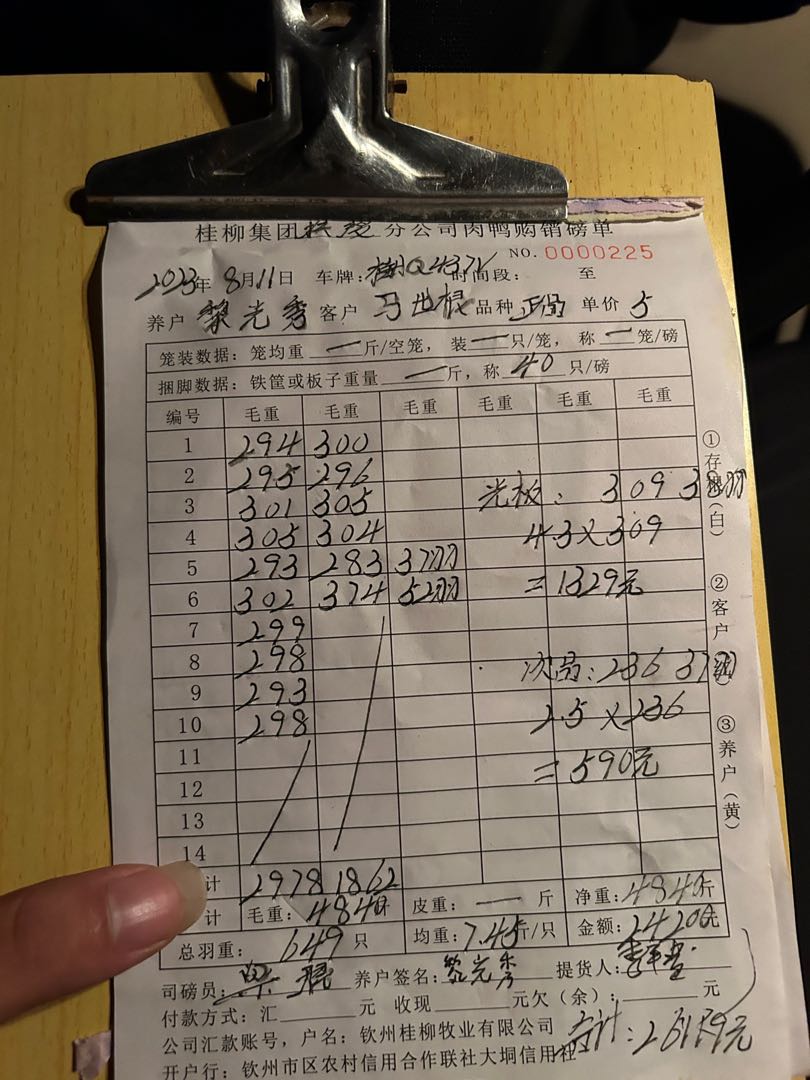 桂柳集团 分公司肉鸭购销磅单
NO. 0000225
2023年8月11日 车牌: 时间段: 至
养户 黎光秀 客户 马世根 品种 正品 单价 5
笼装数据: 笼均重 一 斤/空笼, 装 一 只/笼, 称 一 笼/磅
捆脚数据: 铁筐或板子重量 一 斤, 称 40 只/磅
编号 毛重 毛重 毛重 毛重 毛重 毛重
1 294 300
2 295 296
3 301 305 光板: 309 38羽
4 305 304 4.3×309
5 293 283 37羽
6 302 374 52羽 =1329元
7 299
8 298 次品:236 37羽
9 293
10 298 2.5×236
11 =590元
12
13
14
计 2978 1862
计 毛重: 4840斤 皮重: 一 斤 净重: 4840斤
总羽重: 649 只 均重: 7.45斤/只 金额: 24200元
司磅员: 养户签名: 黎光秀 提货人:
付款方式: 汇 元 收现 元欠(余): 元
公司汇款账号, 户名: 钦州桂柳牧业有限公司 合计: 26119元
开户行: 钦州市区农村信用合作联社大垌信用社
①存根(白) ②客户 ③养户(黄)